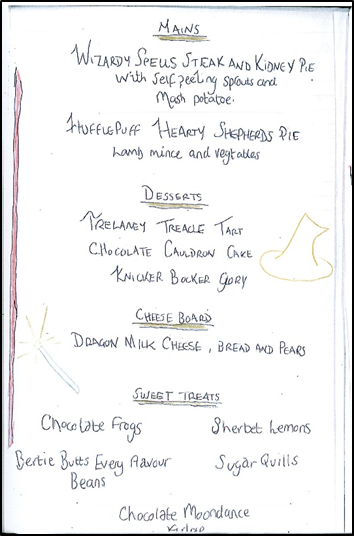 MAINS
WIZARDY SPELLS STEAK AND KIDNEY PIE
with self peeling sprouts and
Mash potatoe.
HUFFLEPUFF HEARTY SHEPHERDS PIE
Lamb mince and vegtables
DESSERTS
TRELANEY TREACLE TART
CHOCOLATE CAULDRON CAKE
KNICKER BOCKER GORY
CHEESE BOARD
DRAGON MILK CHEESE, BREAD AND PEARS
SWEET TREATS
Chocolate Frogs Sherbet Lemons
Bertie Butts Every flavour Sugar Quills
Beans
Chocolate Moondance